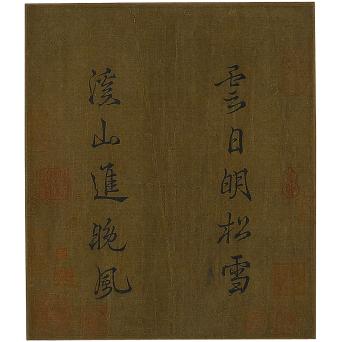 雲日明松雪
溪山進晚風